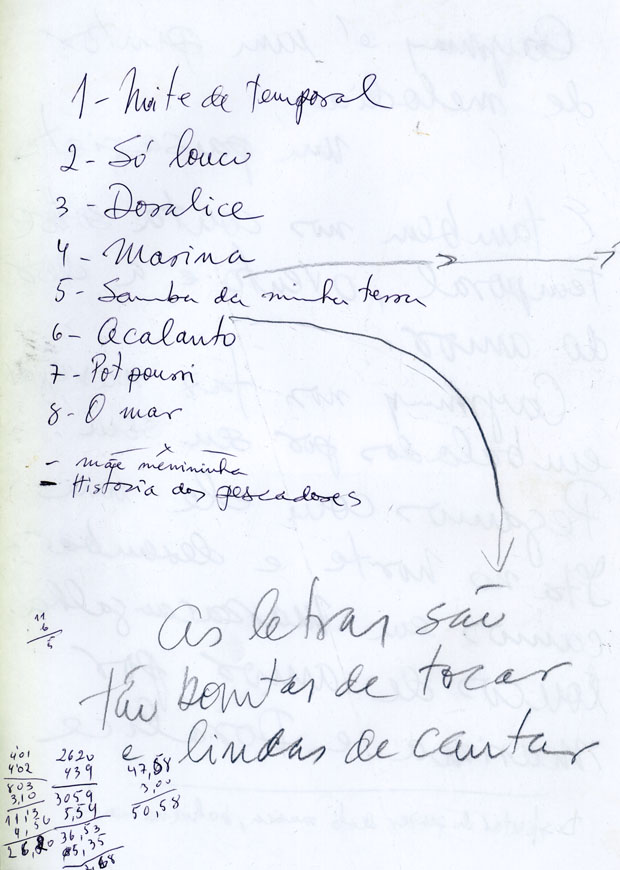 1 - Noite de temporal
2 - Só louco
3 - Doralice
4 - Marina
5 - Samba da minha terra
6 - Acalanto
7 - Pot pourri
8 - O mar
x
- mãe menininha
- Historia dos pescadores
11
6
5
As letras são
tão bonitas de tocar
e lindas de cantar
4'01
4'02
803
3,10
11,13
2620
439
3059
5,54
36,53
47,58
3,00
50,58